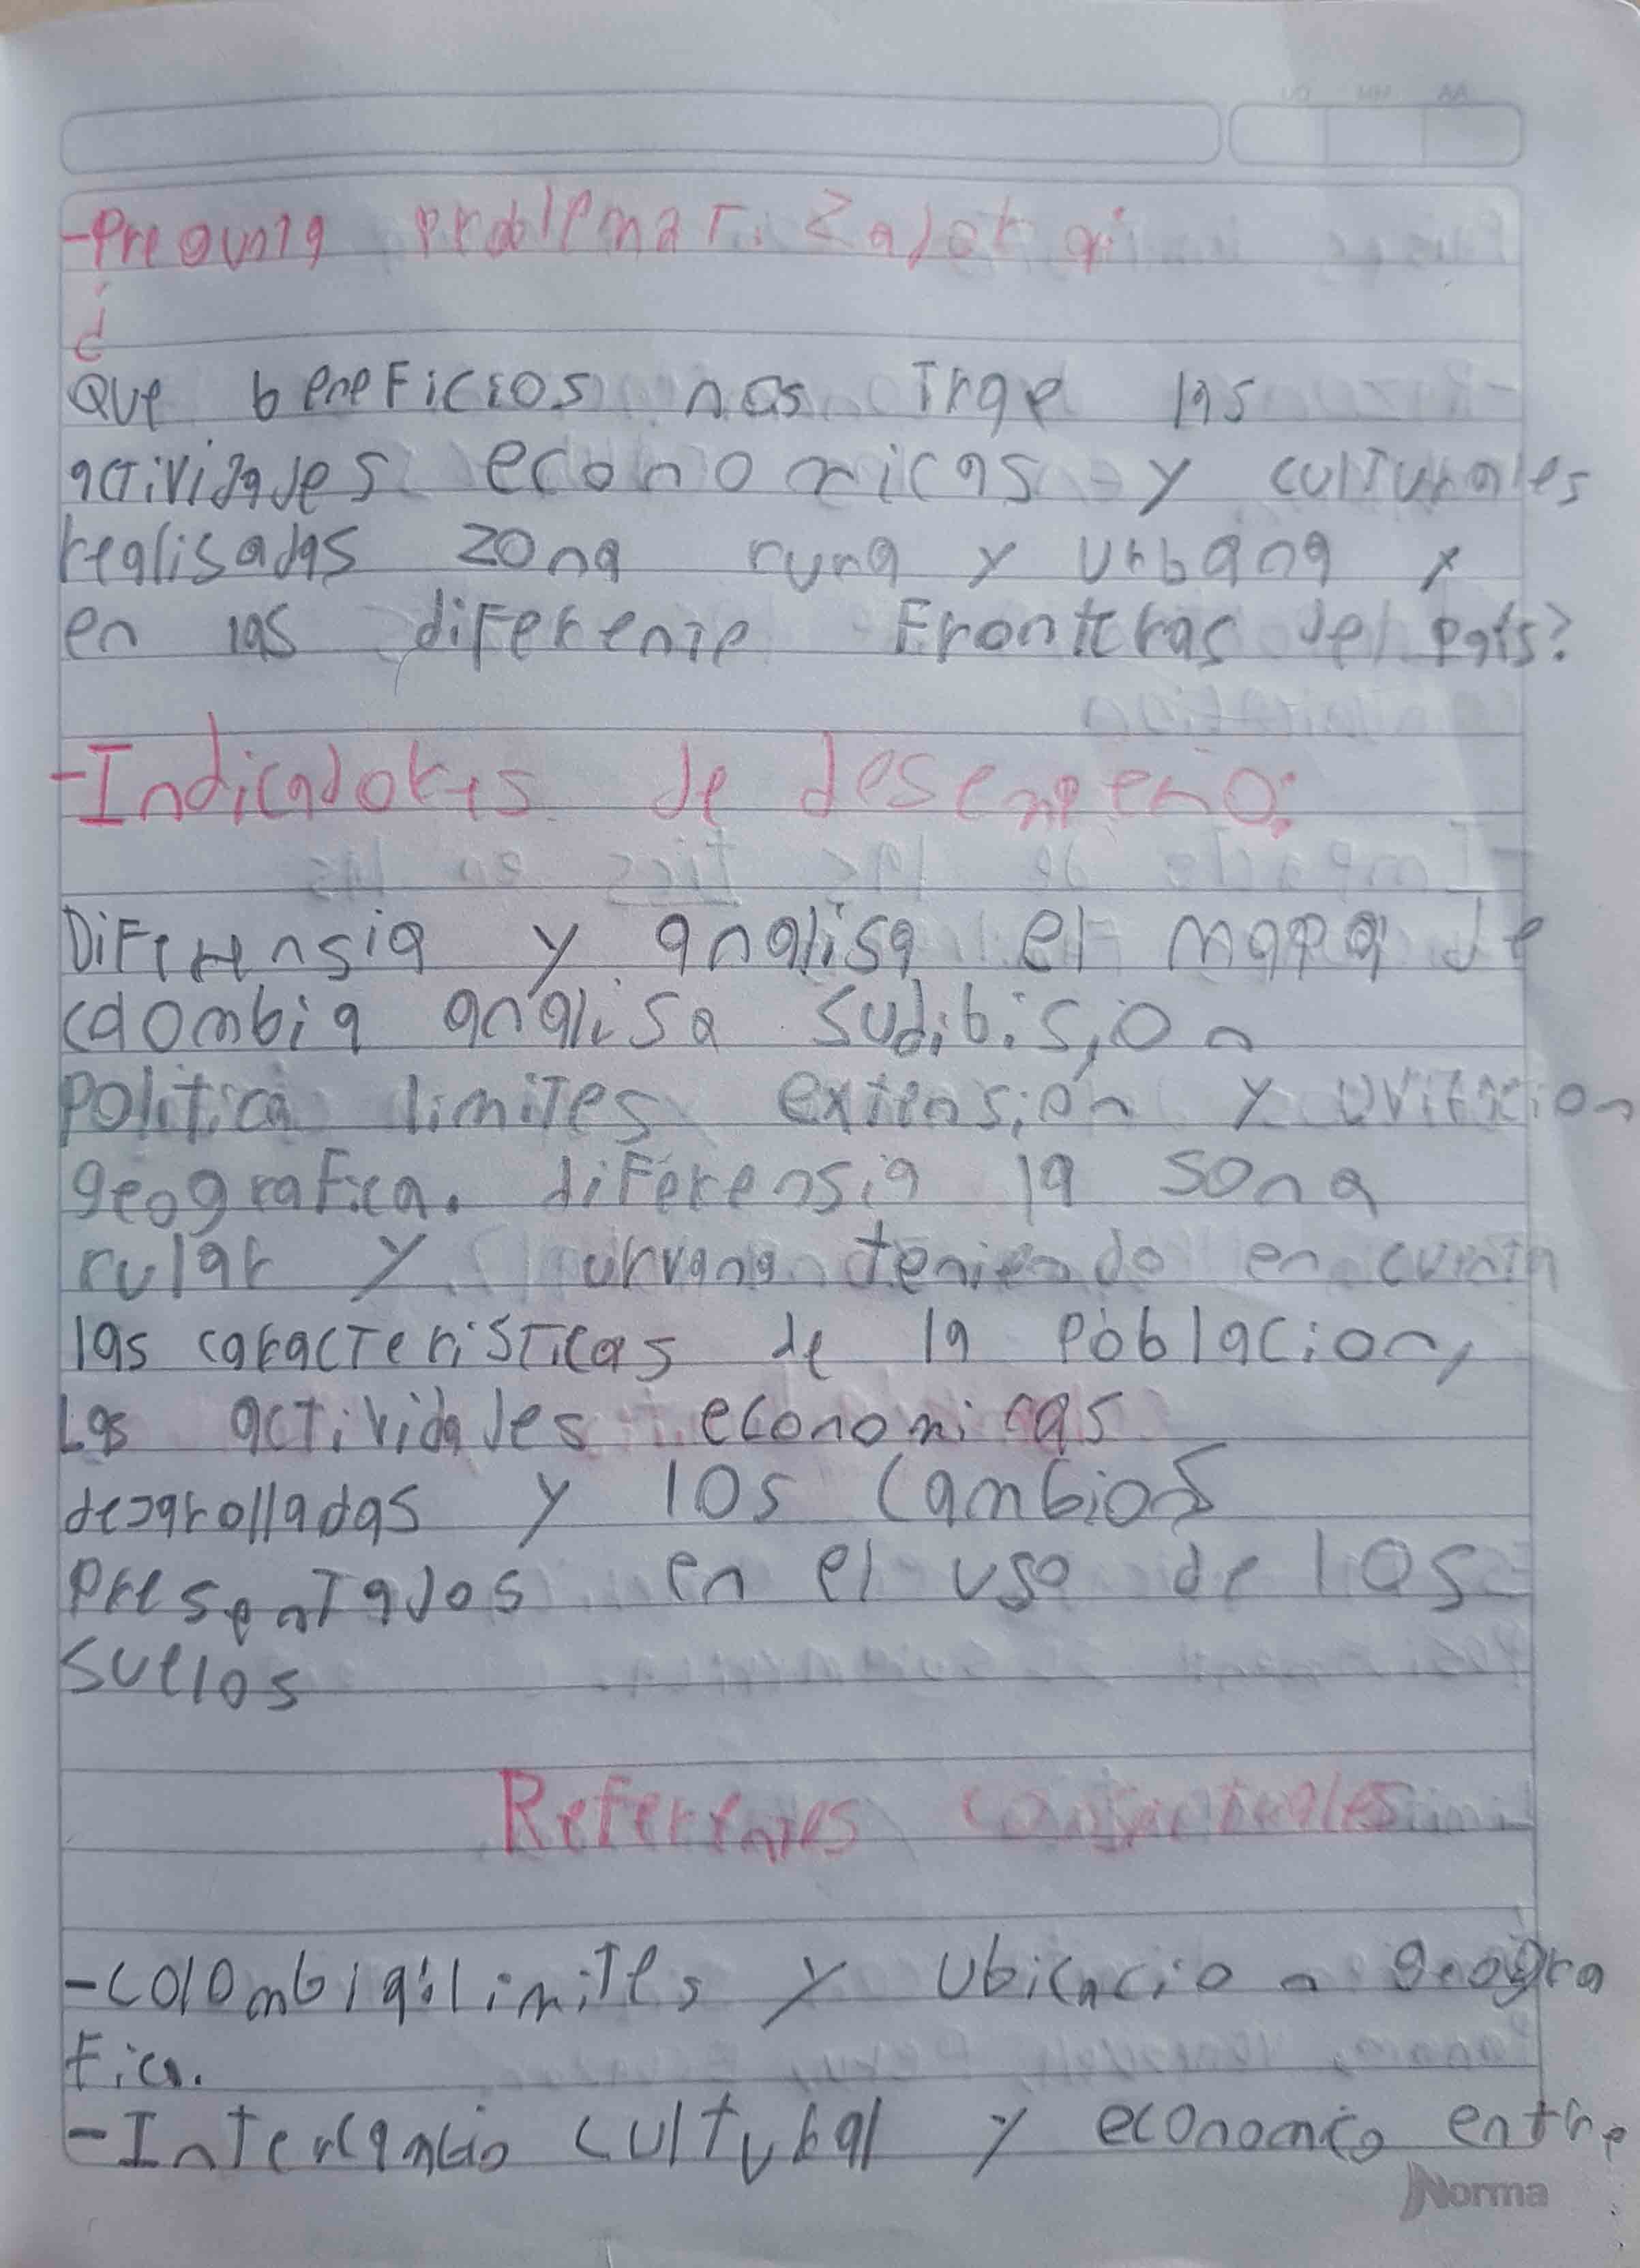 -Pregunta problematizadora
¿
Que beneficios nos trae las
actividades economicas y culturales
realisadas zona rura y urbana y
en las diferente Fronteras del país?
-Indicadores de desempeño:
Diferensia y analisa el mapa de
colombia analisa sudibision
politica limites extensión y uvitacion
geografica. diferensia la sona
rular y urvana teniendo en cuenta
las caracteristicas de la poblacion,
Las actividades economicas
desarolladas y los cambios
presentados en el uso de los
suelos
Referentes
-colombia: limites y ubicacion geogra
fica.
-Intercambio cultural y economico entre
Norma